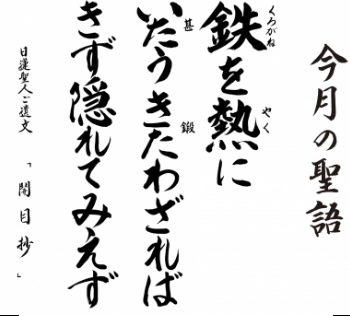 今月の聖語
鉄を熱に
くろがね
やく
いたうきたわざれば
甚
鍛
きず隠れてみえず
日蓮聖人ご遺文
「開目抄」